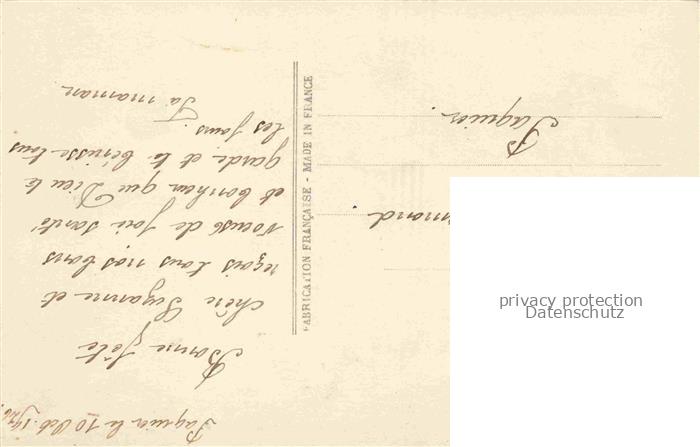 Paquier le 10 Oct. 1926.
Bonne fête
chère Suzanne et
reçois tous nos bons
voeux de joie santé
et bonheur que Dieu te
garde et te bénisse tous
les jours.
Ta maman.
FABRICATION FRANÇAISE - MADE IN FRANCE
Paquier.
privacy protection
Datenschutz